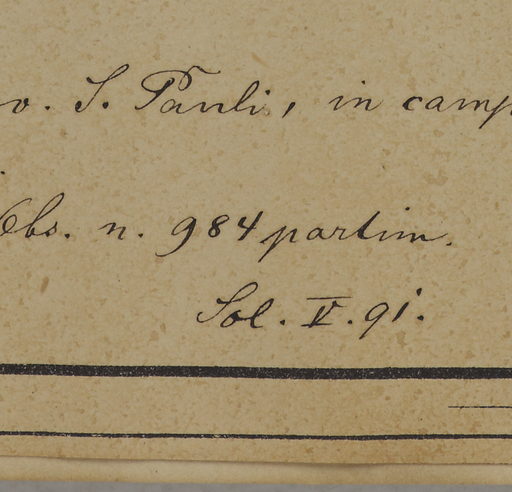 o. S. Pauli, in camp
Obs. n. 984 partim.
Sol. V. 91.